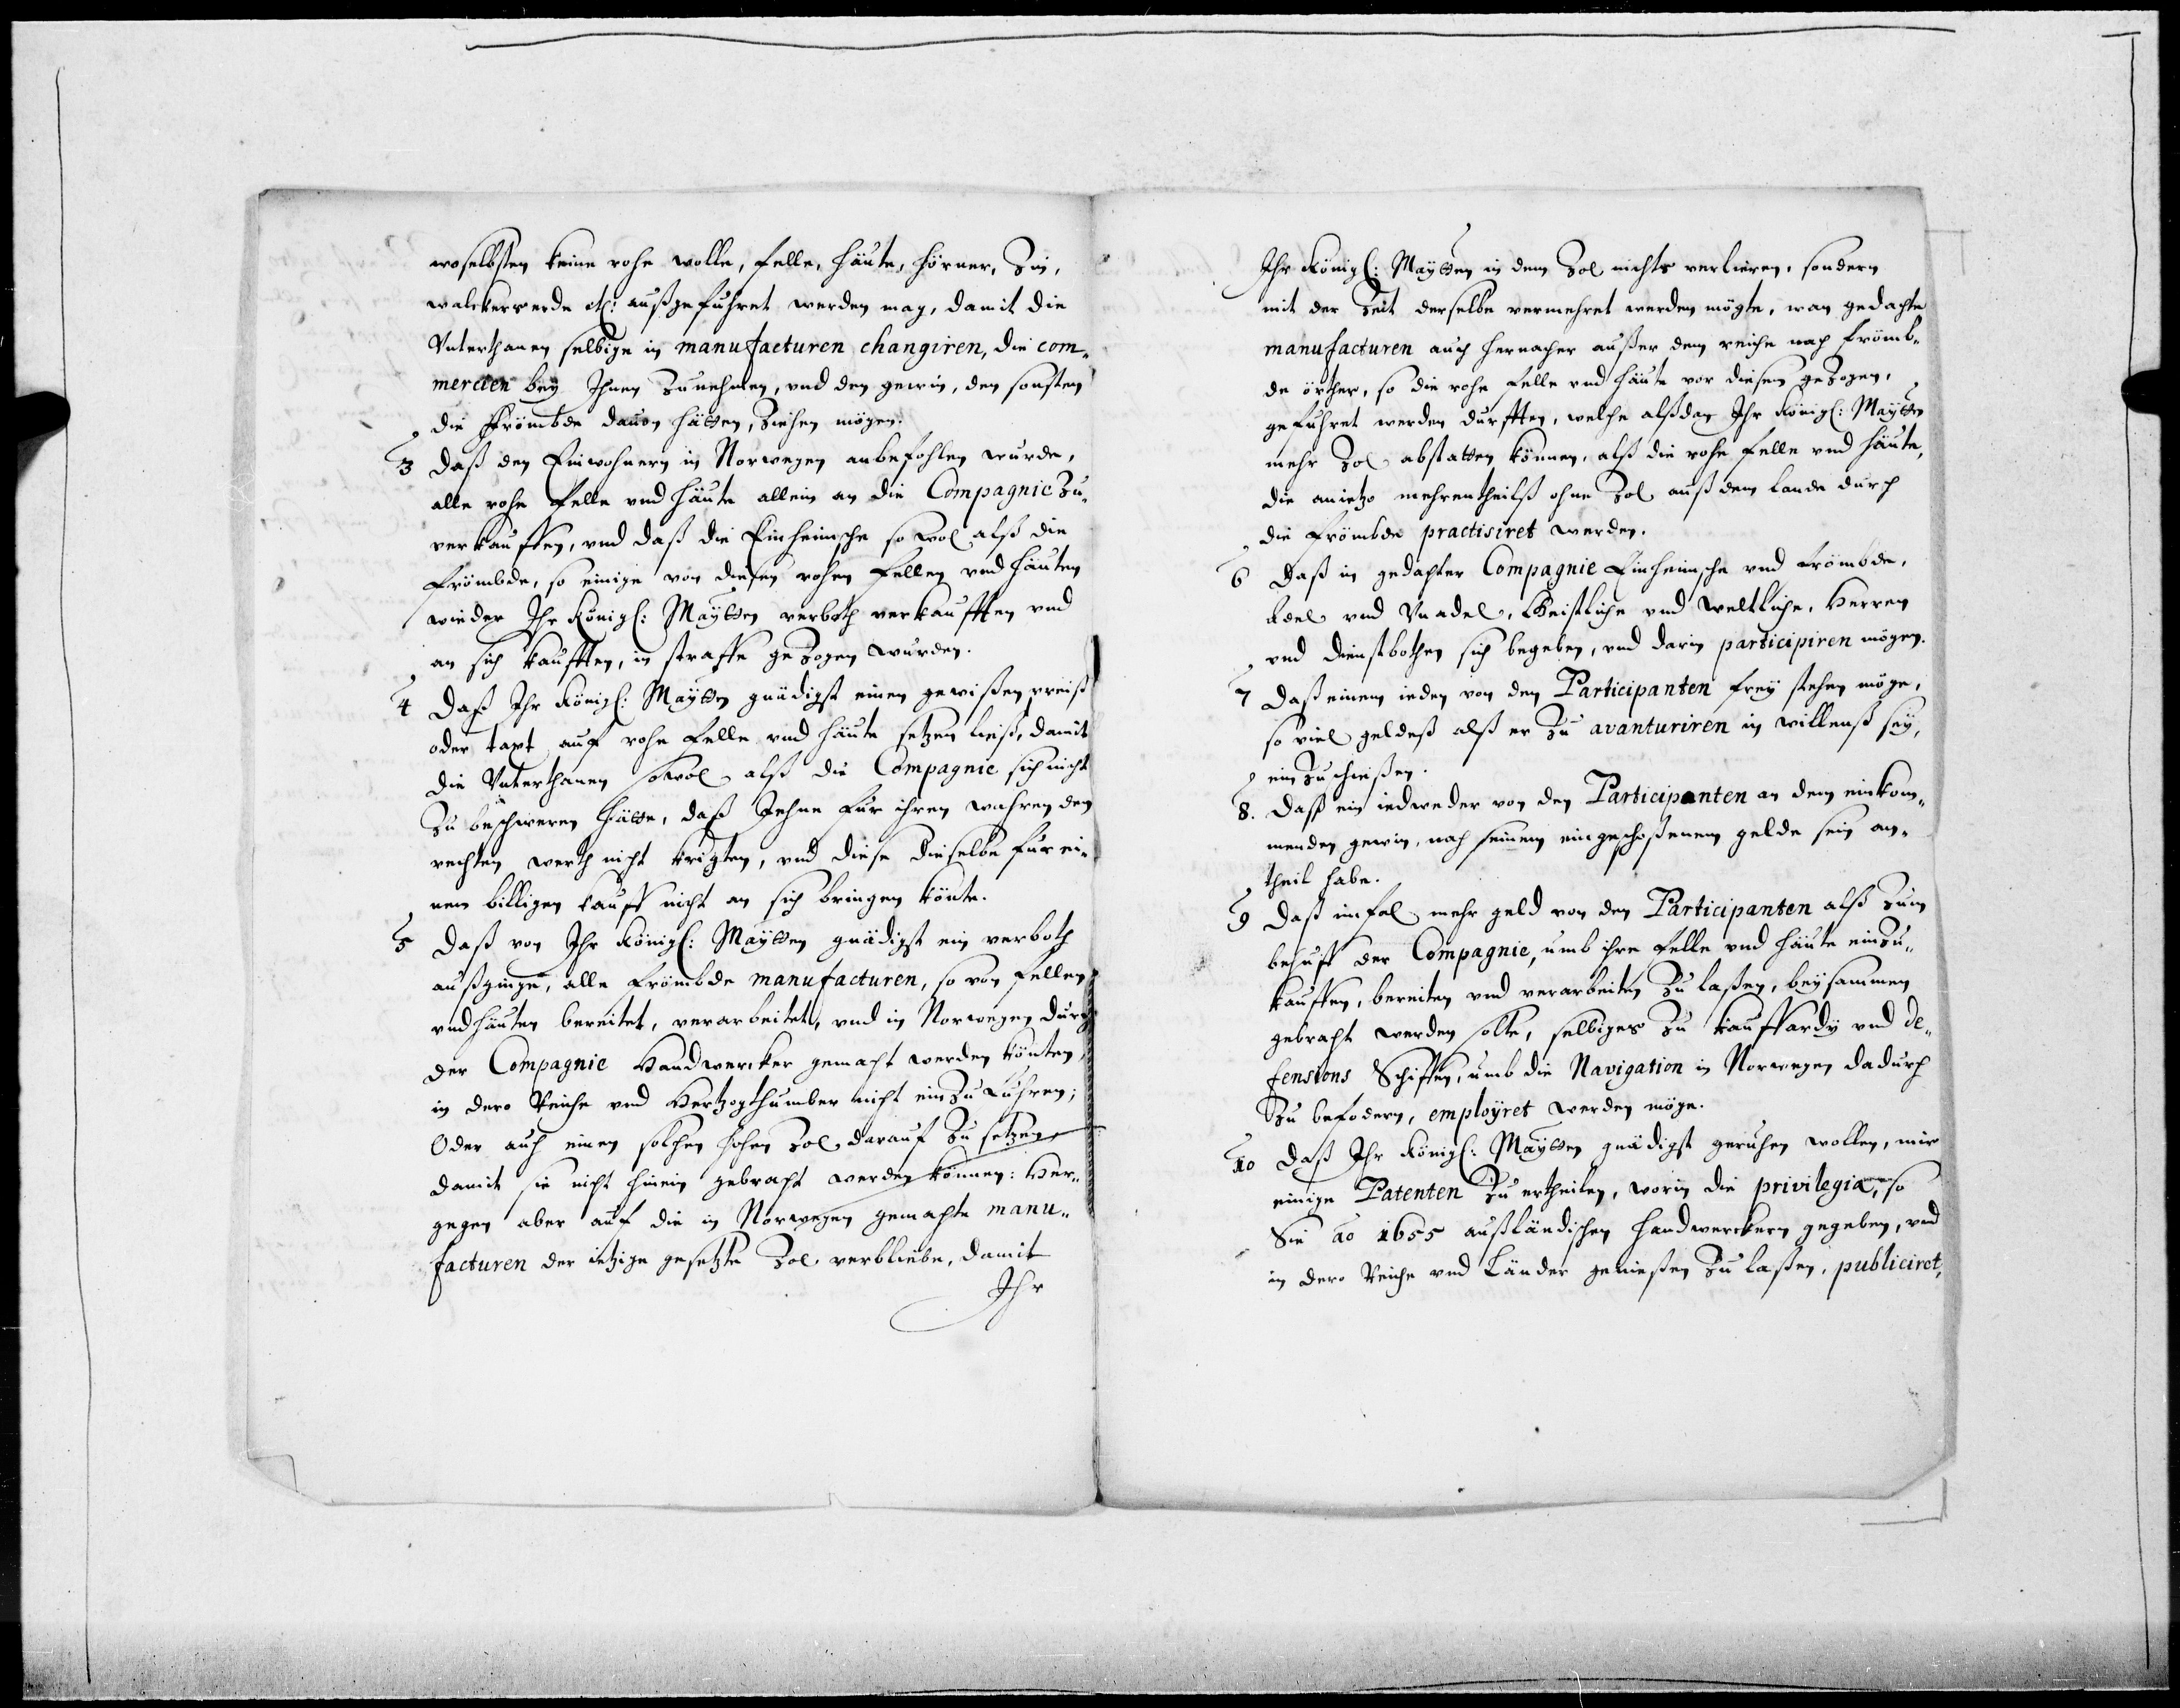 woselbsten keine rohe wolle, felle, häute, hörner, Zin,
walckerserde etc: außgeführet werden mag, damit die
Vnterthanen selbige in manufacturen changiren, die com„
mercien bey Ihnen Zunehmen, vnd den gewin, den sonsten
die Frömbde dauon hätten, Ziehen mögen.
3 Daß den Einwohnern in Norwegen anbefohlen wurde,
alle rohe Felle vnd Häute allein an die Compagnie Zu„
verkauffen, vnd daß die Einheimsche so wol alß die
Frömbde, so einige von diesen rohen Fellen vnd Häuten
wieder Ihr Königl: Maÿtten verboth verkaufften vnd
an sich kaufften, in straffe geZogen wurden.
4 Daß Ihr Königl: Maÿtten gnädigst einen gewißen preiß
oder taxt auf rohe Felle vnd Häute setzen ließ, damit
die Vnterthanen sowol alß die Compagnie sich nicht
Zu beschweren hätte, daß Jehne für ihren wahren den
rechten werth nicht kriegten, vnd diese dieselbe für ei„
nen billigen kauff nicht an sich bringen könte.
5 Daß von Ihr Königl: Maÿtten gnädigst ein verboth
außginge, alle Frömbde manufacturen, so von Fellen
vnd Häuten bereitet, verarbeitet, vnd in Norwegen durch
der Compagnie Handwercker gemacht werden könten,
in dero Reiche vnd Hertzogthumber nicht einZuführen;
Oder auch einen solchen hohen Zol darauf Zu setzen,
damit sie nicht hinein gebracht werden können: Her„
gegen aber auf die in Norwegen gemachte manu„
facturen der ietzige gesetzte Zol verbliebe, damit
Ihr
Ihr Königl: Maÿtten in dem Zol nichts verlieren, sondern
mit der Zeit derselbe vermehret werden mögte, wan gedachte
manufacturen auch hernacher außer dem reiche nach Frömb„
de örther, so die rohe Felle vnd Häute vor diesem geZogen,
geführet werden durfften, welche alßdan Ihr Königl: Maÿtten
mehr Zol abstatten können, alß die rohe Felle vnd Häute,
die anietzo mehrentheilß ohne Zol auß dem Lande durch
die Frömbde practisiret werden.
6 Daß in gedachter Compagnie Einheimsche vnd Frömbde,
Adel vnd Vnadel, Geistliche vnd Weltliche, Herren
vnd dienstbothen sich begeben, vnd darin participiren mögen.
7 Daß einem ieden von den Participanten frey stehen möge,
so viel geldeß alß er Zu avanturiren in willenß seÿ,
einZuschießen.
8. Daß ein iedweder von den Participanten an dem einkom„
menden gewin, nach seinem eingeschoßenem gelde sein an„
theil habe.
9 Daß imfal mehr geld von den Participanten alß Zum
behuff der Compagnie, umb ihre Felle vnd Häute einZu„
kauffen, bereiten vnd verarbeiten Zu laßen, beysammen
gebracht werden solte, selbiges Zu kauffardÿ vnd de„
fensions Schiffen, umb die Navigation in Norwegen dadurch
Zu befodern, emploÿret werden möge.
10 Daß Ihr Königl: Maÿtten gnädigst geruhen wollen, mir
einige Patenten Zu ertheilen, worin die privilegia, so
Sie ao 1655 außländischen Handwerckern gegeben, vnd
in dero Reiche vnd Länder genießen Zu laßen, publiciret,